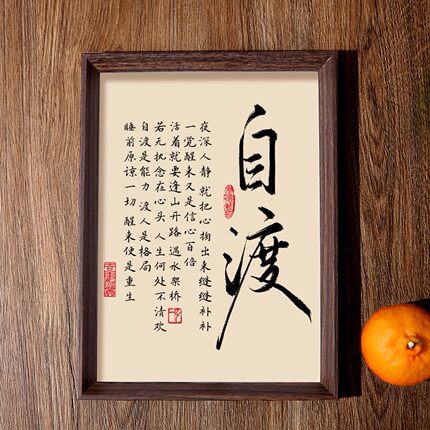 自渡
夜深人静 就把心掏出来缝缝补补
一觉醒来又是信心百倍
活着就要逢山开路 遇水架桥
若无执念在心头 人生何处不清欢
自渡是能力 渡人是格局
睡前原谅一切 醒来便是重生